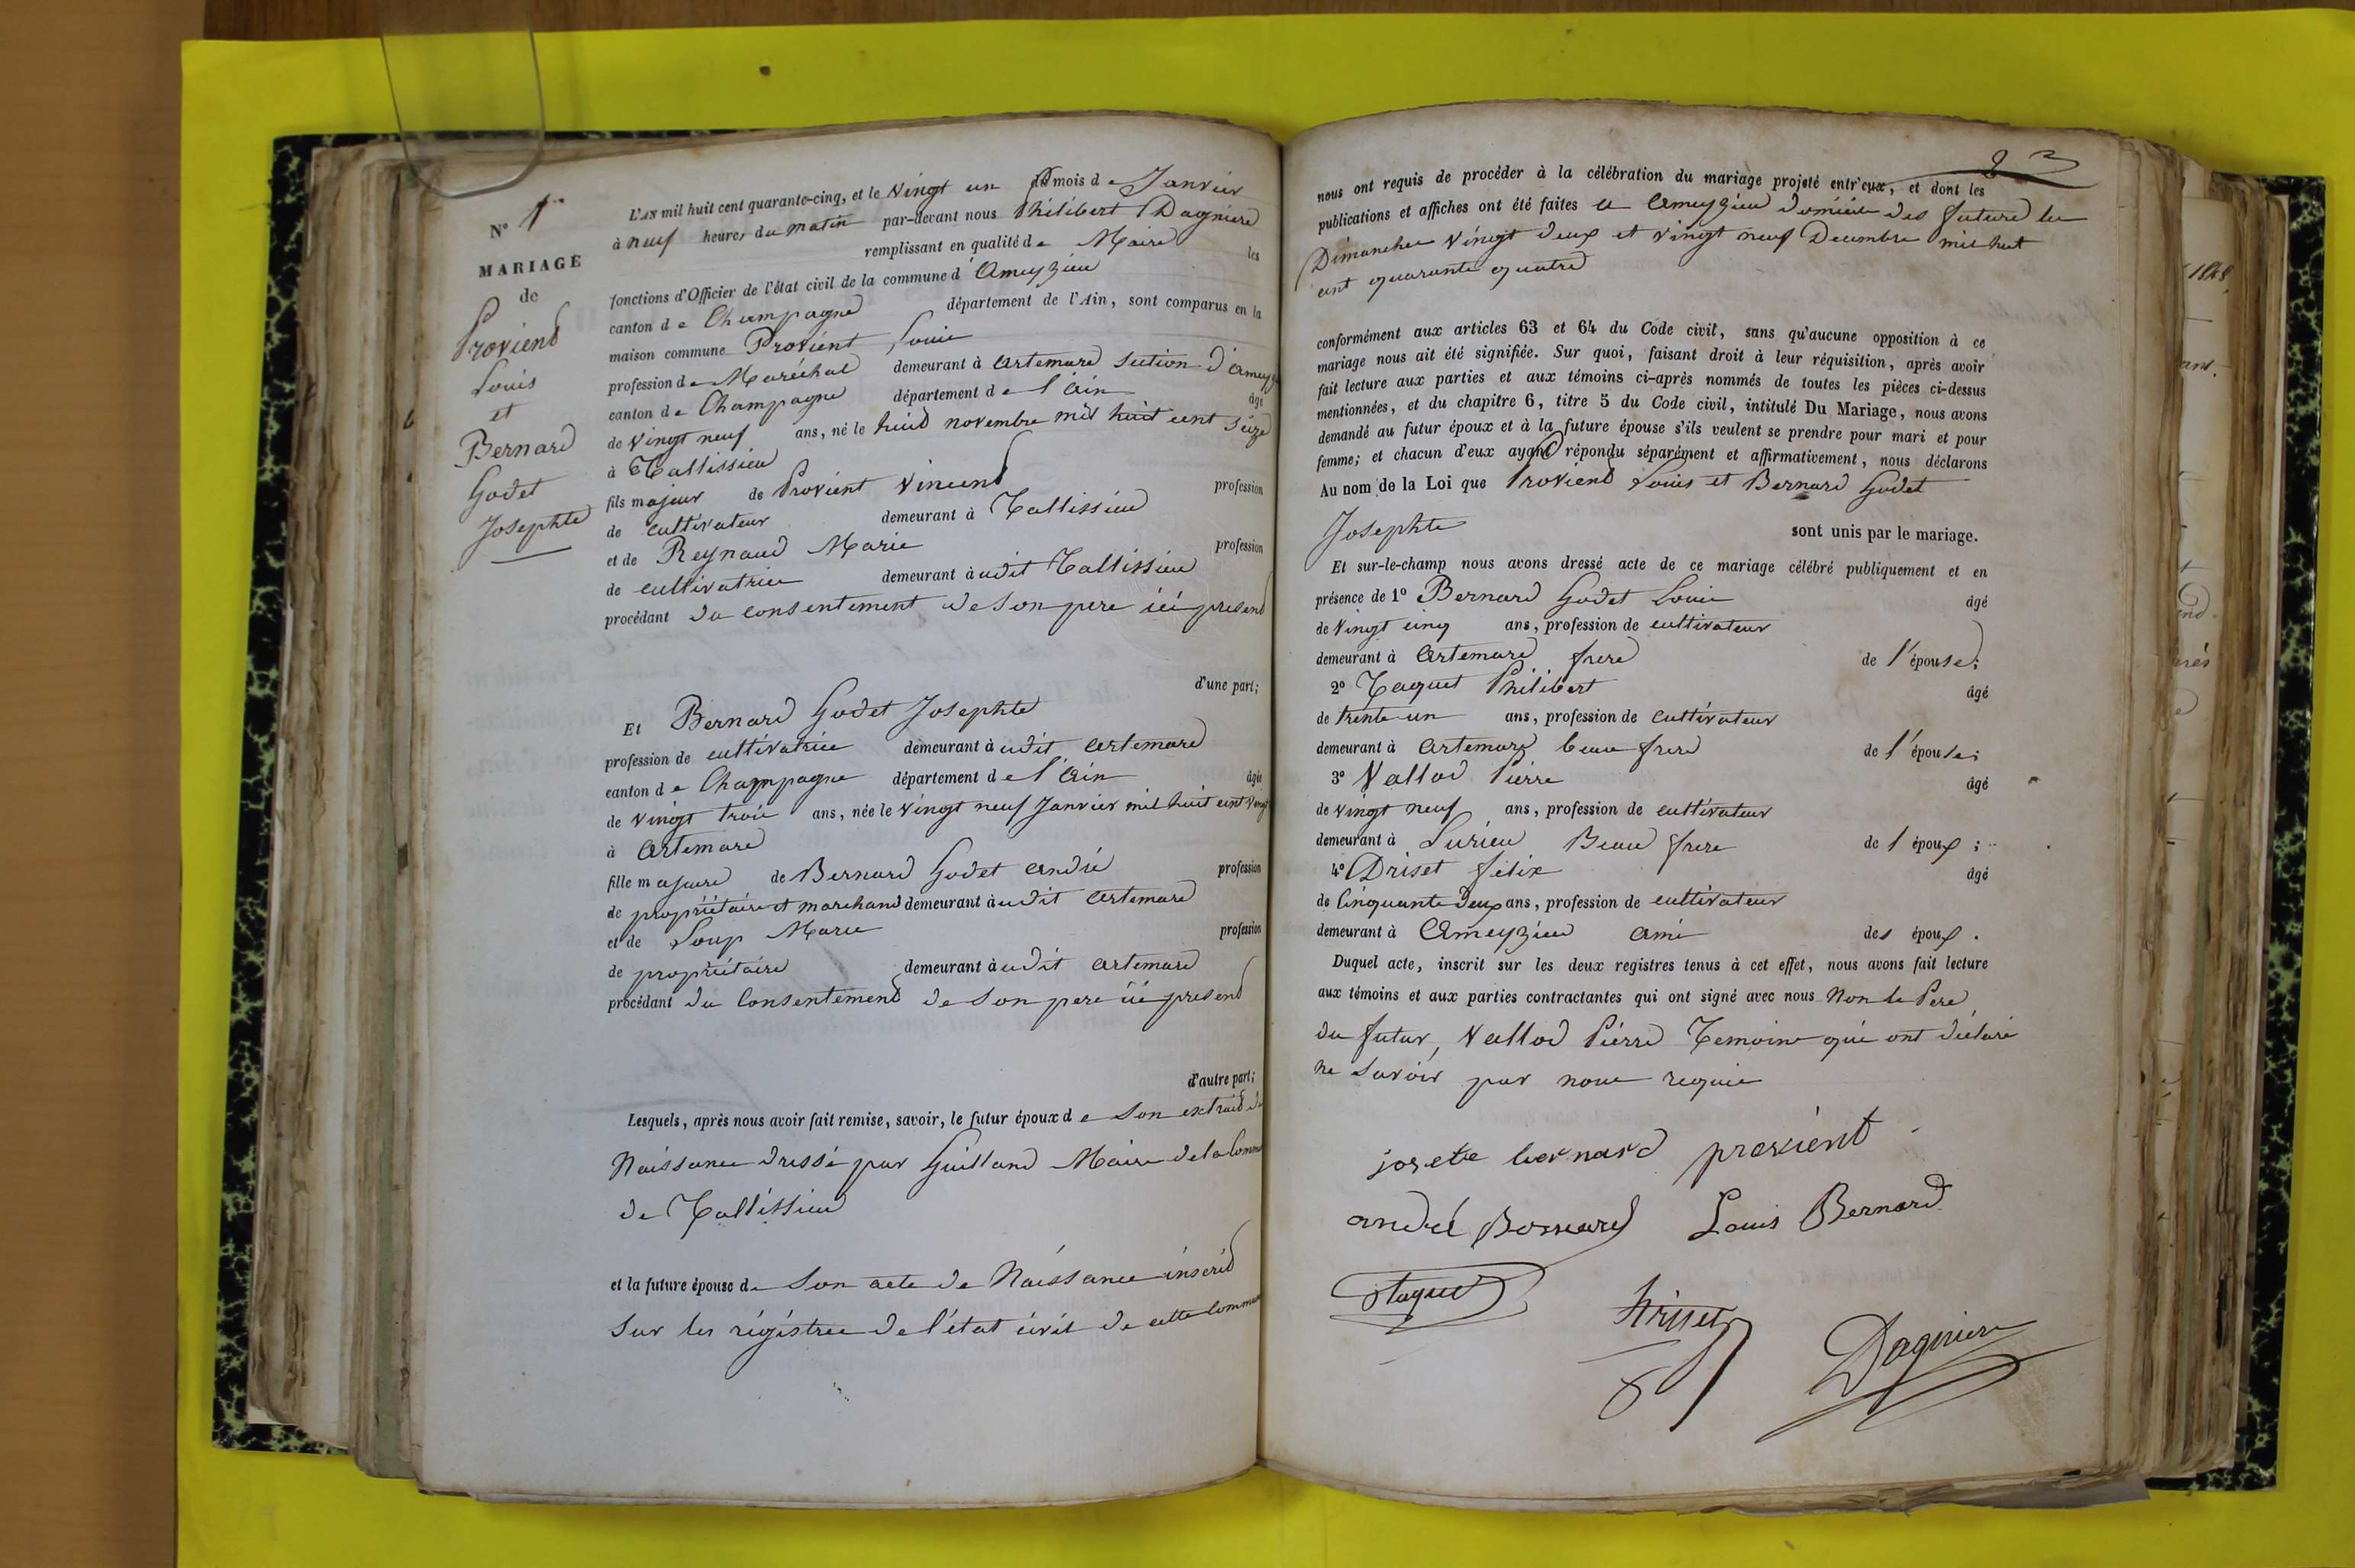 N° 1er
MARIAGE
de
Provient
Louis
et
Bernard
Godet
Josephte
L'AN mil huit cent quarante-cinq, et le vingt un du mois de Janvier
à neuf heures du matin par-devant nous Philibert Dagniere
remplissant en qualité de Maire les
fonctions d'Officier de l'état civil de la commune d'Ameyzieu
canton de Champagne département de l'Ain, sont comparus en la
maison commune Provient Louis
profession de Maréchal demeurant à Artemare section d'Ameyz
canton de Champagne département de l'Ain âgé
de vingt neuf ans, né le huit novembre mil huit cent seize
à Tallissieu
fils majeur de Provient Vincent profession
de cultivateur demeurant à Tallissieu
et de Reynaud Marie profession
de cultivatrice demeurant à udit Tallissieu
procédant du consentement de son pere ici present
d'une part;
Et Bernard Godet Josephte
profession de cultivatrice demeurant à udit Artemare
canton de Champagne département de l'Ain âgée
de vingt trois ans, née le vingt neuf Janvier mil huit cent vingt
à Artemare
fille majeure de Bernard Godet André profession
de propriétaire et marchand demeurant à udit Artemare
et de Loup Marie profession
de propriétaire demeurant à udit Artemare
procédant du Consentement de son pere ici present
d'autre part;
Lesquels, après nous avoir fait remise, savoir, le futur époux de son extrait de
Naissance dressé par Guilland Maire de la Comm
de Tallissieu
et la future épouse de son acte de Naissance inscrit
sur les régistres de l'état civil de cette commune
23
nous ont requis de procéder à la célébration du mariage projeté entr'eux, et dont les
publications et affiches ont été faites a Ameyzieu domicile des futurs les
Dimanches vingt deux et vingt neuf Decembre mil huit
cent quarante quatre
conformément aux articles 63 et 64 du Code civil, sans qu'aucune opposition à ce
mariage nous ait été signifiée. Sur quoi, faisant droit à leur réquisition, après avoir
fait lecture aux parties et aux témoins ci-après nommés de toutes les pièces ci-dessus
mentionnées, et du chapitre 6, titre 5 du Code civil, intitulé Du Mariage, nous avons
demandé au futur époux et à la future épouse s'ils veulent se prendre pour mari et pour
femme; et chacun d'eux ayant répondu séparément et affirmativement, nous déclarons
Au nom de la Loi que Provient Louis et Bernard Godet
Josephte sont unis par le mariage.
Et sur-le-champ nous avons dressé acte de ce mariage célébré publiquement et en
présence de 1° Bernard Godet Louis âgé
de vingt cinq ans, profession de cultivateur
demeurant à Artemare frere de l'épouse;
2° Taquet Philibert âgé
de trente un ans, profession de cultivateur
demeurant à Artemare beau frere de l'épouse;
3° Vallod Pierre âgé
de vingt neuf ans, profession de cultivateur
demeurant à Surieu Beau frere de l époux;
4° Driset felix âgé
de Cinquante deux ans, profession de cultivateur
demeurant à Ameyzieu ami des époux.
Duquel acte, inscrit sur les deux registres tenus à cet effet, nous avons fait lecture
aux témoins et aux parties contractantes qui ont signé avec nous Non le Pere
du futur, Vallod Pierre Temoins qui ont déclaré
ne savoir par nous requis
josette bernard provient
andré Bernard Louis Bernard
Taquet
Dagniere
1845